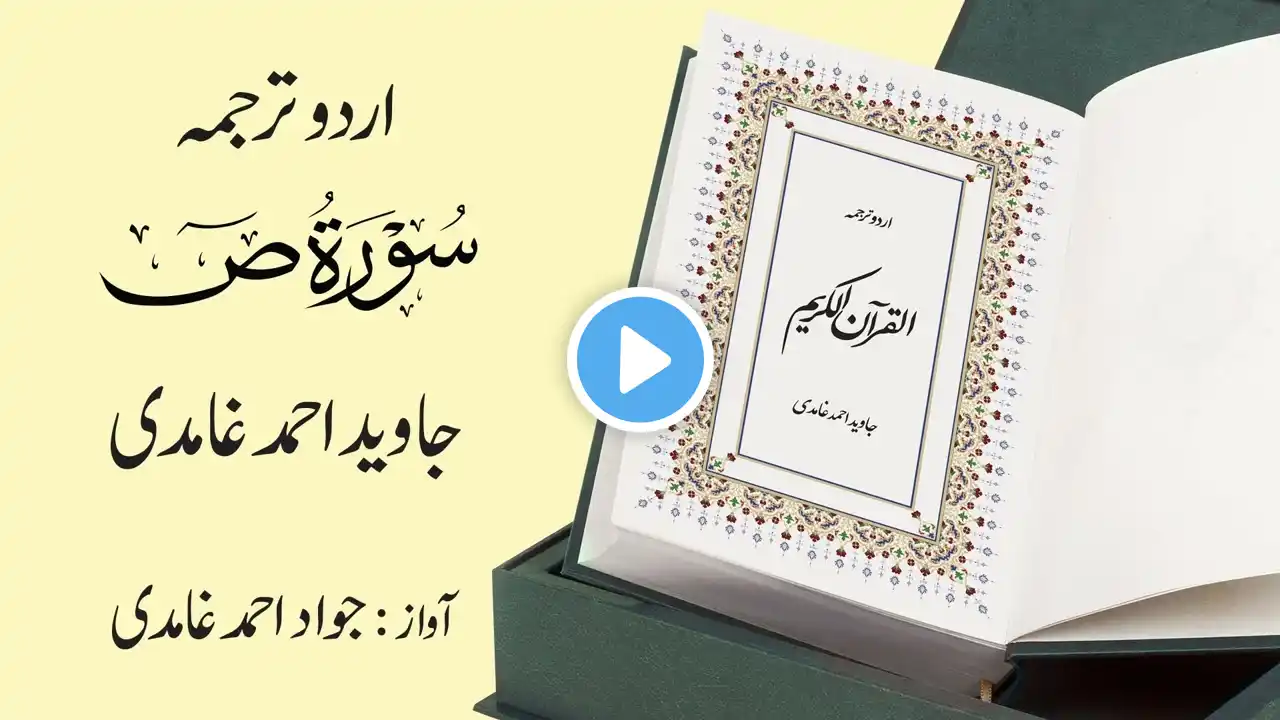 اردو ترجمہ
سُوۡرَةُ صٓ
جاوید احمد غامدی
آواز : جواد احمد غامدی
اردو ترجمہ
القرآن الکریم
جاوید احمد غامدی